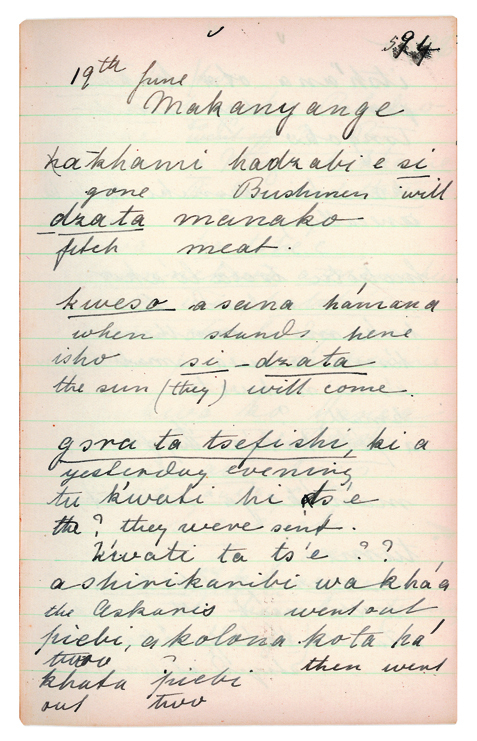 594
19th June
Makanyange
kakhami hadzabi e si
gone Bushmen will
dzata manako
fitch meat.
kweso a sana hámana
when stands here
isho si - dzata
the sun (they) will come.
gsra ta tsefishi, ki a
yesterday evening
tu k'wati hi ts'e
the ? they were sent.
k'wati ta ts'e ??
ashirikaribi wa khá'a
the Askaris went out
piebi, a kolona kota há'
two then went
khata piebi
out two